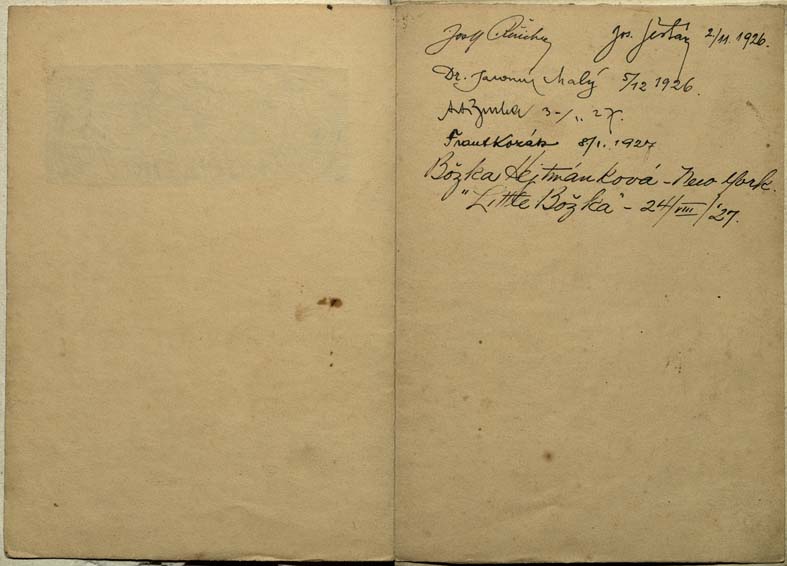 Josef Jos. 2/11. 1926.
Dr. Jaromír Malý 5/12 1926.
3-/1. 27.
Frant Korák 8/1. 1927
Božka Hejtmánková - New York.
"Little Božka" - 24/VIII/'27.